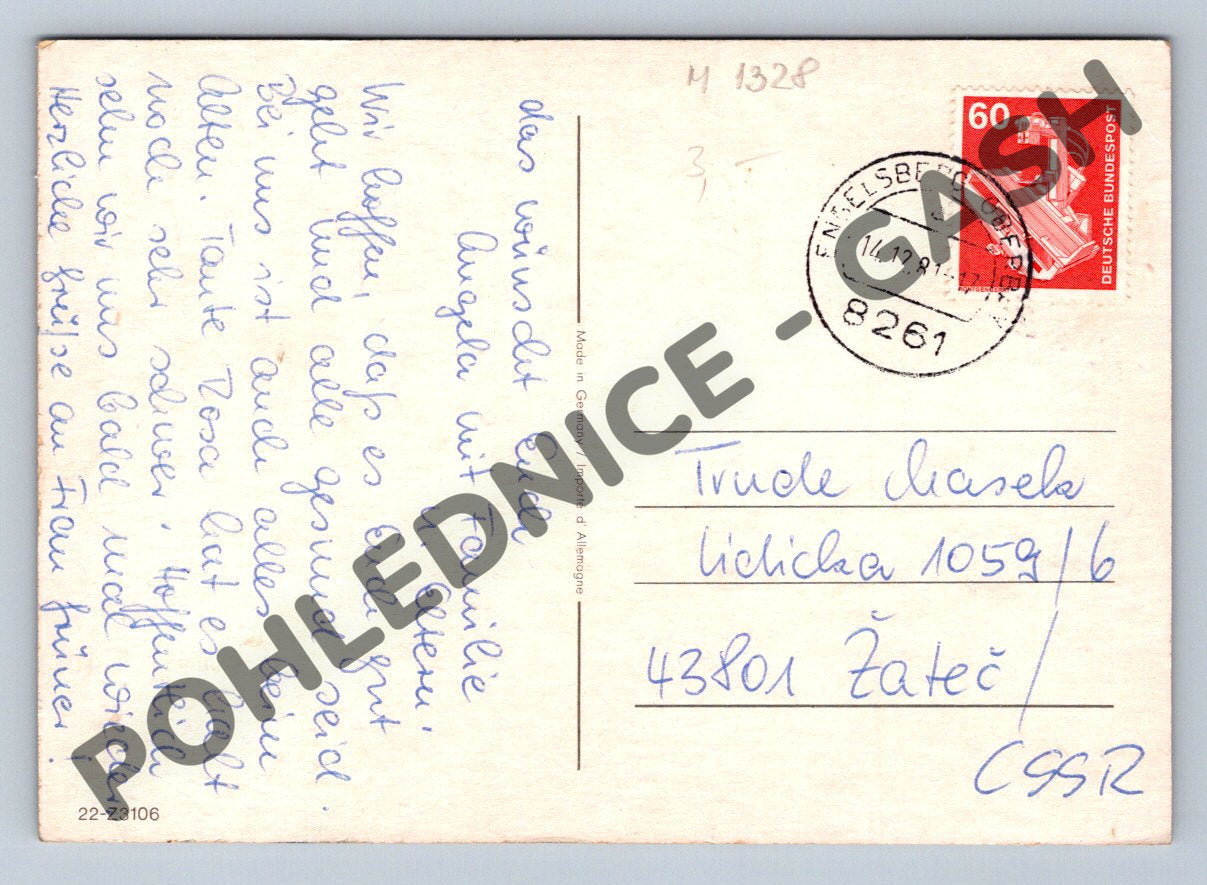 M 1328
3,-
60
DEUTSCHE BUNDESPOST
ENGELSBERG, OBERBAY
14.12.81-17
8261
das wünscht Euch
Angela mit Familie
u. Eltern.
Wir hoffen, daß es Euch gut
geht und alle gesund seid.
Bei uns ist auch alles beim
Alten. Tante Rosa hat es halt
noch sehr schwer. Hoffentlich
sehen wir uns bald mal wieder
Herzliche Grüße an Frau Grüner.
Made in Germany / Importé d'Allemagne
Trude Masek
Lidicka 1059/6
43801 Žateč
CSSR
22-Z3106
POHLEDNICE - GASH